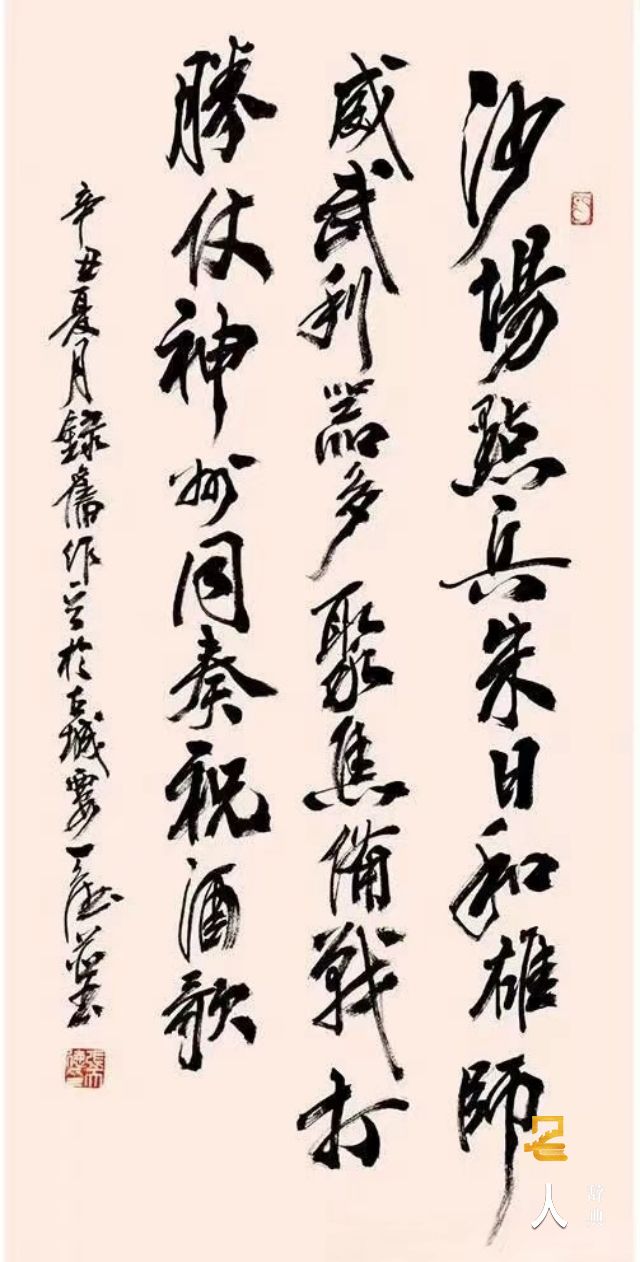 沙場點兵朱日和雄師
威武利器多聚焦備戰打
勝仗神州同奏祝酒歌
辛丑夏月錄舊作於古城
名人辞典